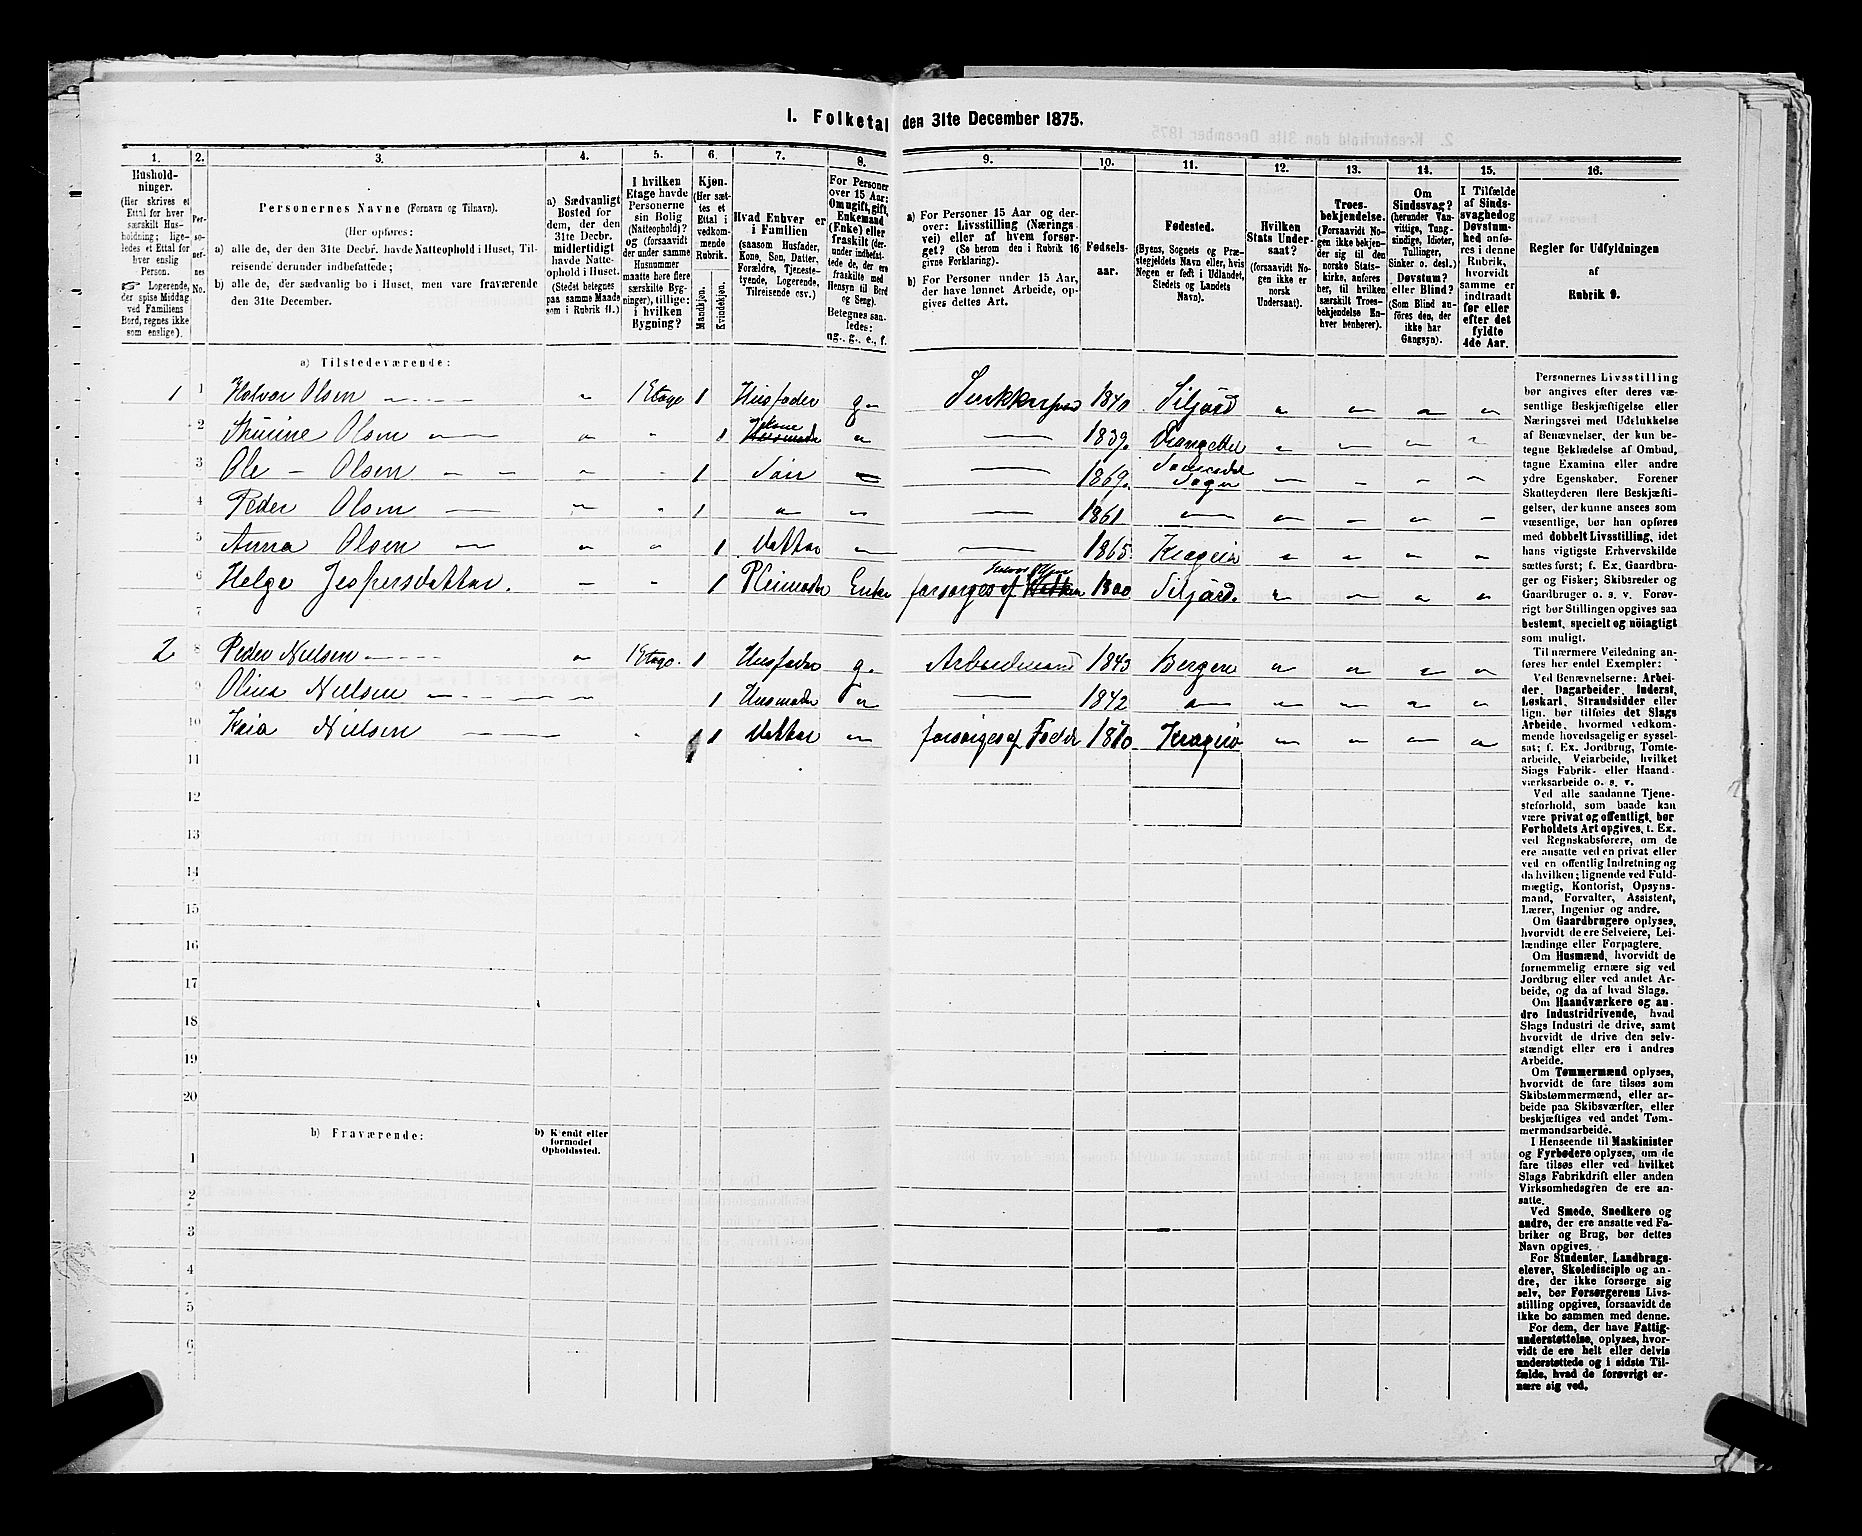 1. Folketal den 31te December 1875.
1.
2.
3.
4.
5.
6.
7.
8.
9.
10.
11.
12.
13.
14.
15.
16.
Hushold-
ninger.
(Her skrives et
Ettal for hver
særskilt Hus-
holdning; lige-
ledes et Ettal for
hver enslig
Person.
Logerende,
der spise Middag
ved Familiens
Bord, regnes ikke
som enslige).
Per-
so-
ner-
nes
No.
Personernes Navne (Fornavn og Tilnavn).
(Her opføres:
a) alle de, der den 31te Decbr. havde Natteophold i Huset, Til-
reisende derunder indbefattede;
b) alle de, der sædvanlig bo i Huset, men vare fraværende
den 31te December.
a) Sædvanligt
Bosted for
dem, der den
31te Decbr.
midlertidigt
havde Natte-
ophold i Huset.
(Stedet betegnes
paa samme Maade
som i Rubrik 11.)
I hvilken
Etage havde
Personerne
sin Bolig
(Natteophold)?
og (forsaavidt
der under samme
Husnummer
maatte høre flere
særskilte Byg-
ninger), tillige:
i hvilken
Bygning?
Kjøn.
(Her sæt-
tes et
Ettal i
vedkom-
mende
Rubrik.
Mandkjøn.
Kvindekjøn.
Hvad Enhver er
i Familien
(saasom Husfader,
Kone, Søn, Datter,
Forældre, Tjeneste-
tyende, Logerende,
Tilreisende osv.)
For Personer
over 15 Aar:
Om ugift, gift,
Enkemand
(Enke) eller
fraskilt (der-
under indbefat-
tede de, der ere
fraskilte med
Hensyn til Bord
og Seng).
Betegnes saa-
ledes:
ug., g., e., f.
a) For Personer 15 Aar og der-
over: Livsstilling (Nærings-
vei) eller af hvem forsør-
get? (Se herom den i Rubrik 16
givne Forklaring).
b) For Personer under 15 Aar,
der have lønnet Arbeide, op-
gives dettes Art.
Fødsels-
aar.
Fødested.
(Byens, Sognets og Præ-
stegjeldets Navn eller, hvis
Nogen er født i Udlandet,
Stedets og Landets
Navn).
Hvilken
Stats Under-
saat?
(forsaavidt No-
gen ikke er
norsk
Undersaat).
Troes-
bekjendelse.
(Forsaavidt No-
gen ikke bekjen-
der sig til den
norske Stats-
kirke, anføres
her, til hvilken
særskilt Troes-
bekjendelse En-
hver henhører).
Om
Sindssvag?
(herunder Van-
vittige, Tung-
sindige, Idioter,
Tullinger,
Sinker o. desl.)
Døvstum?
eller Blind?
(Som Blind an-
føres den, der
ikke har
Gangsyn).
I Tilfælde
af Sinds-
svaghed og
Døvstum-
hed anfø-
res i denne
Rubrik,
hvorvidt
samme er
indtraadt
før eller
efter det
fyldte
4de Aar.
Regler for Udfyldningen
af
Rubrik 9.
a) Tilstedeværende:
1 1 Halvor Olsen 1 Etage 1 Husfader g. 1840 Siljord
2 Olsen 1 Kone Husmoder 1839.
3 Ole Olsen 1 Søn 1869.
4 Peder Olsen 1 1861
5 Anna Olsen 1 Datter 1865 Kragerø
6 Helge Jespersdatter. 1 Pleimoder Enke forsørges af 1800 Siljord.
7
2 8 Peder Nielsen 1 Etage. 1 Husfader g. Arbeidsmand 1843 Bergen
9 Olina Nielsen 1 Husmoder 1842
10 Kaia Nielsen 1 Datter forsørges af Fader 1870 Kragerø
11
12
13
14
15
16
17
18
19
20
b) Fraværende:
b) Kjendt eller
formodet
Opholdssted.
1
2
3
4
5
6
Personernes Livsstilling
bør angives efter deres væ-
sentlige Beskjæftigelse eller
Næringsvei med Udelukkelse
af Benævnelser, der kun be-
tegne Beklædelse af Ombud,
tagne Examina eller andre
ydre Egenskaber. Forener
Skatteyderen flere Beskjæfti-
gelser, der kunne ansees som
væsentlige, bør han opføres
med dobbelt Livsstilling, idet
hans vigtigste Erhvervskilde
sættes først; f. Ex. Gaardbru-
ger og Fisker; Skibsreder og
Gaardbruger o. s. v. Forøv-
rigt bør Stillingen opgives saa
bestemt, specielt og nøiagtigt
som muligt.
Til nærmere Veiledning an-
føres her endel Exempler:
Ved Benævnelserne: Arbei-
der, Dagarbeider, Inderst,
Løskarl, Strandsidder eller
lign. bør tilføies det Slags
Arbeide, hvormed vedkom-
mende hovedsagelig er syssel-
sat; f. Ex. Jordbrug, Tomte-
arbeide, Veiarbeide, hvilket
Slags Fabrik- eller Haand-
værksarbeide o. s. v.
Ved alle saadanne Tjene-
steforhold, som baade kan
være privat og offentligt, bør
Forholdets Art opgives, t. Ex.
ved Regnskabsførere, om de
ere ansatte ved en privat eller
ved en offentlig Indretning og
da hvilken; lignende ved Fuld-
mægtig, Kontorist, Opsyns-
mand, Forvalter, Assistent,
Lærer, Ingeniør og andre.
Om Gaardbrugere oplyses,
hvorvidt de ere Selveiere, Lei-
lændinge eller Forpagtere.
Om Husmænd, hvorvidt de
fornemmelig ernære sig ved
Jordbrug eller ved andet Ar-
beide, og da af hvad Slags.
Om Haandværkere og an-
dre Industridrivende, hvad
Slags Industri de drive, samt
hvorvidt de drive den selv-
stændigt eller ere i andres
Arbeide.
Om Tømmermænd oplyses,
hvorvidt de fare tilsøs som
Skibstømmermænd, eller ar-
beide paa Skibsværfter, eller
beskjæftiges ved andet Tøm-
mermandsarbeide.
I Henseende til Maskinister
og Fyrbødere oplyses, om de
fare tilsøs eller ved hvilket
Slags Fabrikdrift eller anden
Virksomhedsgren de ere an-
satte.
Ved Smede, Snedkere og
andre, der ere ansatte ved Fa-
briker og Brug, bør dettes
Navn opgives.
For Studenter, Landbrugs-
elever, Skoledisciple og an-
dre, der ikke forsørge sig
selv, bør Forsørgerens Livs-
stilling opgives, forsaavidt de
ikke bo sammen med denne.
For dem, der have Fattig-
understøttelse, oplyses, hvor-
vidt de ere helt eller delvis
understøttede og i sidste Til-
fælde, hvad de forøvrigt er-
nære sig ved.